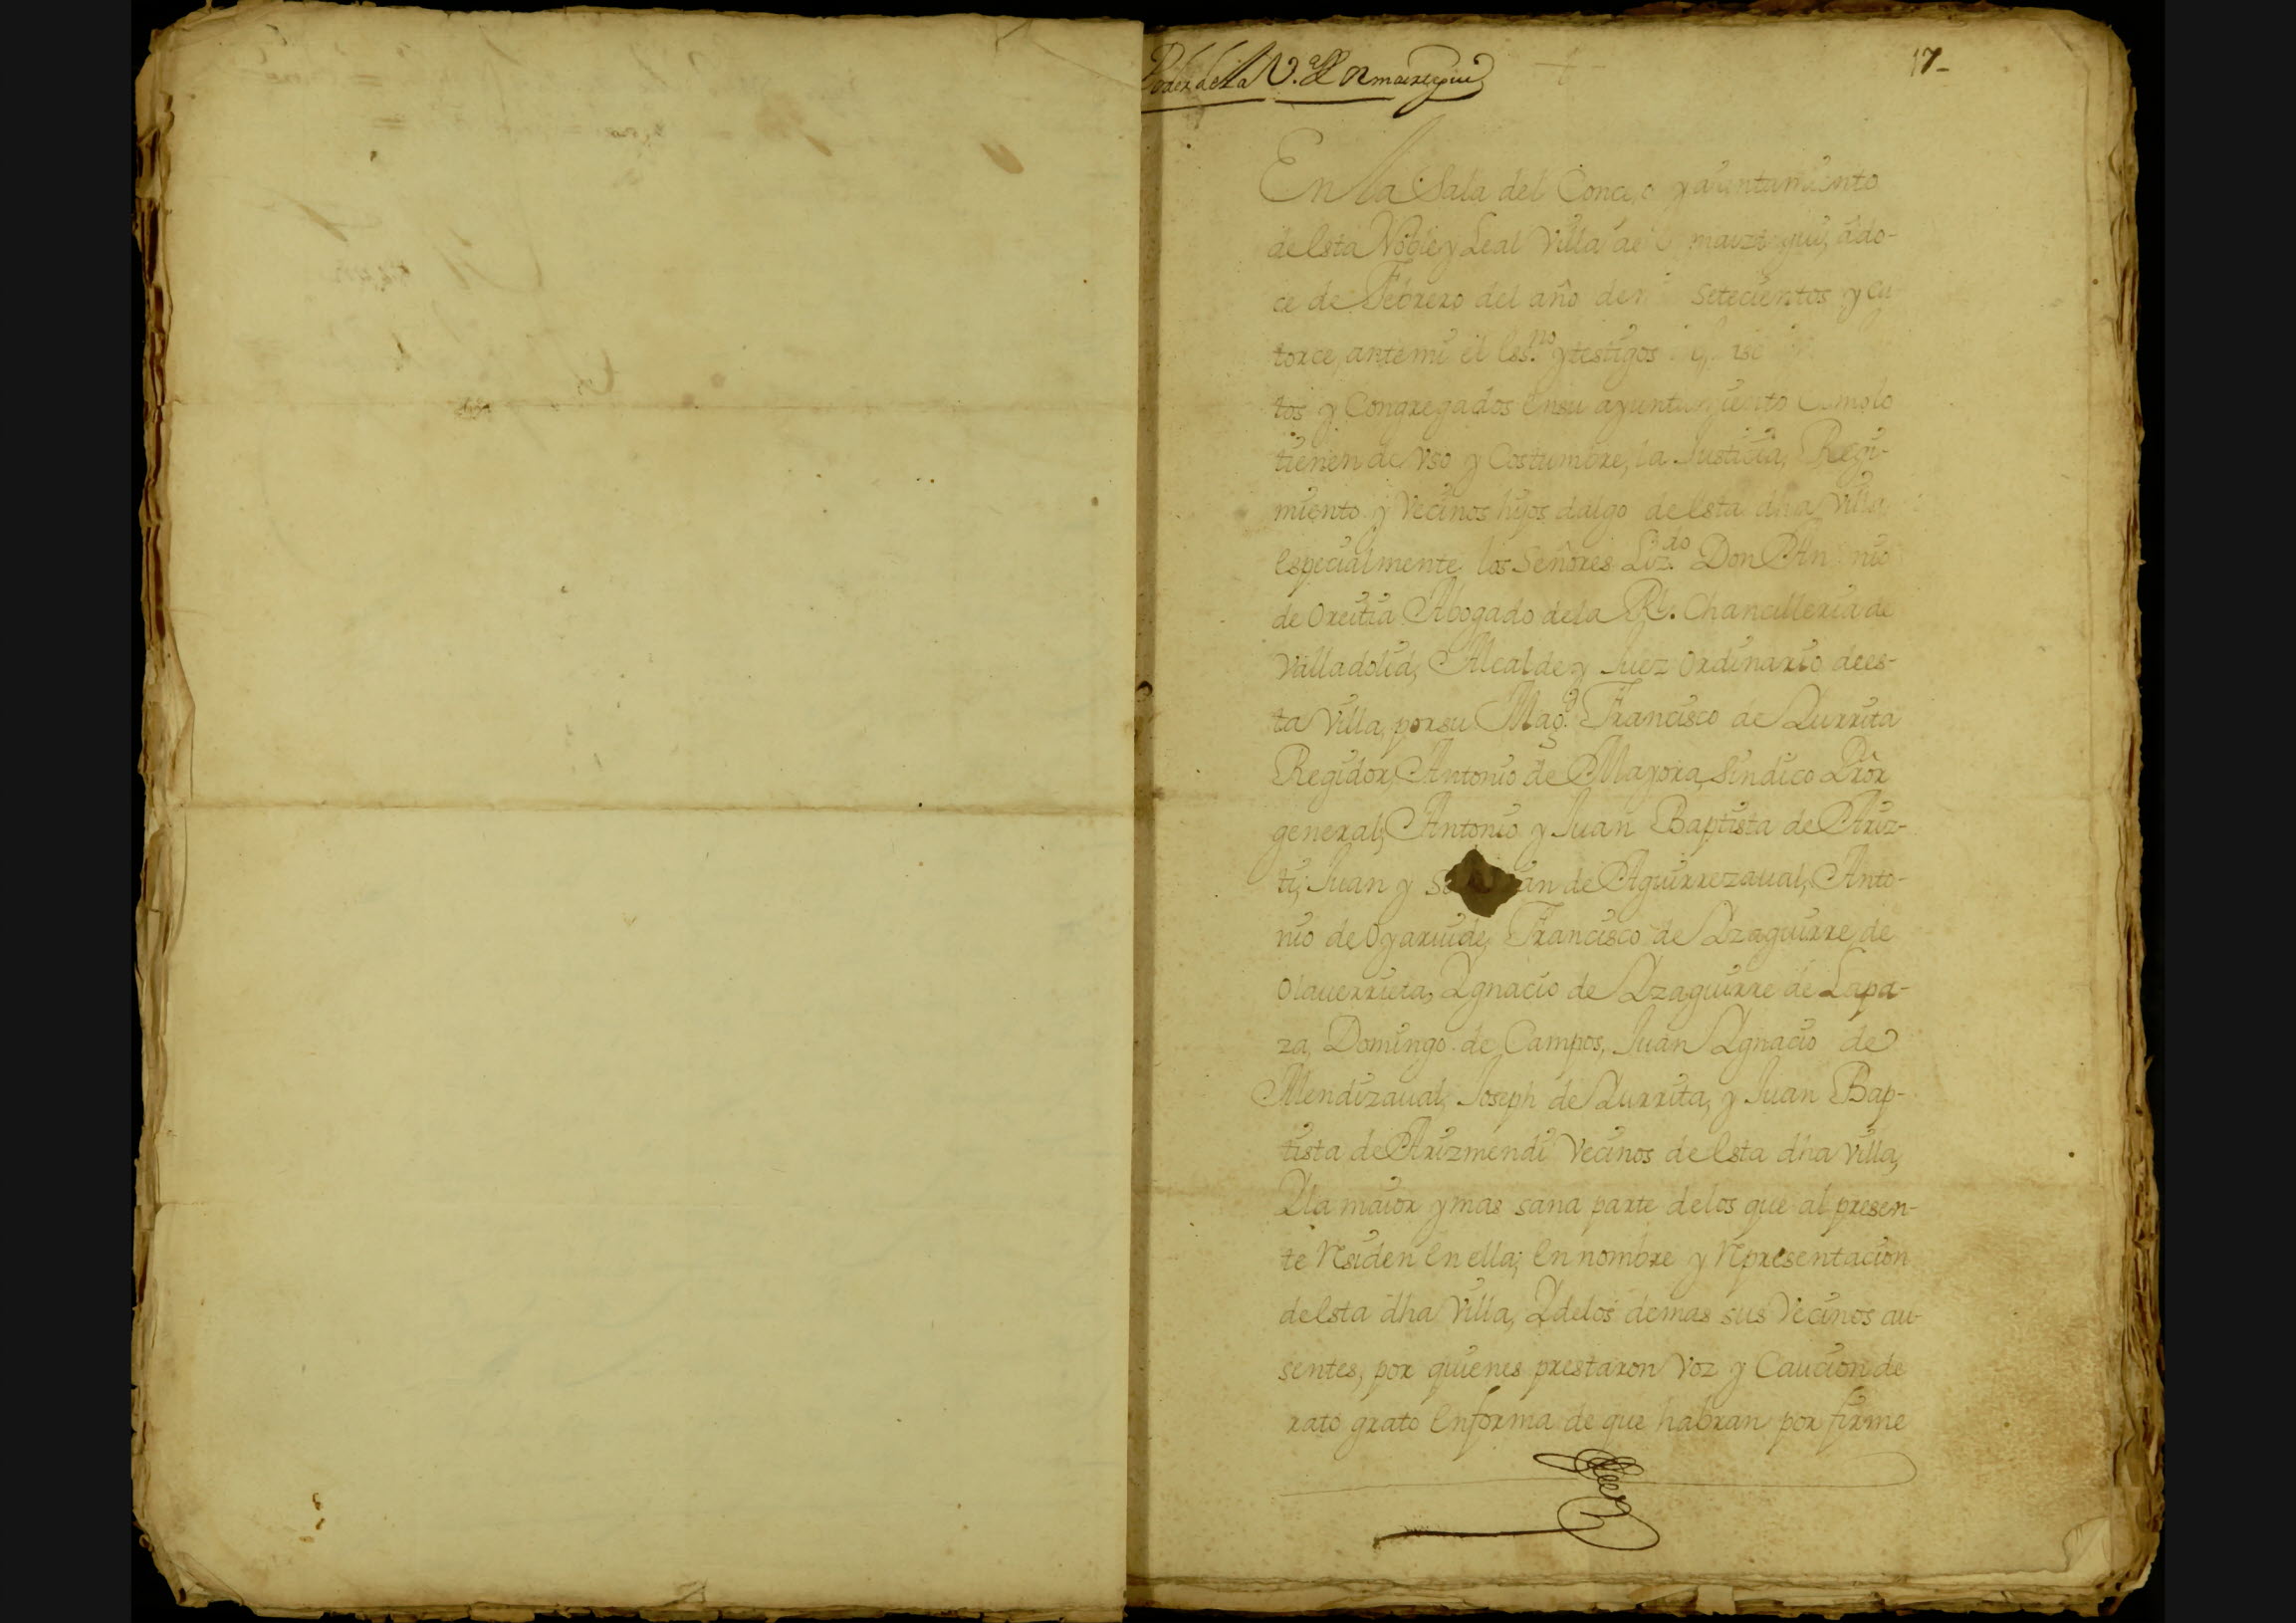 Poder de la V.ª de Ormaiztegui
17-
En la Sala del Concejo y aiuntamiento
de esta Noble y Leal Villa de Ormaiztegui, a do-
ce de Febrero del año de mil Setecientos y ca
torce, ante mi el ess.no y testigos
tos y Congregados en su ayuntamiento Como lo
tienen de vso y Costumbre, la Justicia, Regi-
miento y Vecinos hijos dalgo de esta dha Villa,
especialmente los Señores Liz.do Don Antonio
de Oreitia Abogado de la Rl. Chancilleria de
Valladolid, Alcalde y Juez ordinario de es-
ta Villa, por su Mag.d Francisco de Yurrita
Regidor, Antonio de Mayora, Sindico Pror
general, Antonio y Juan Baptista de Ariz-
ti, Juan y de Aguirrezaual, Anto-
nio de Oyaruide, Francisco de Yzaguirre de
Olauerrieta, Ygnacio de Yzaguirre de Lapa-
za, Domingo de Campos, Juan Ygnacio de
Mendizaual, Joseph de Yurrita, y Juan Bap-
tista de Arizmendi Vecinos de esta dha Villa,
Y la maior y mas sana parte de los que al presen-
te Residen en ella; en nombre y Representacion
de esta dha Villa, Y de los demas sus Vecinos au-
sentes, por quienes prestaron Voz y Caucion de
rato grato en forma de que habran por firme